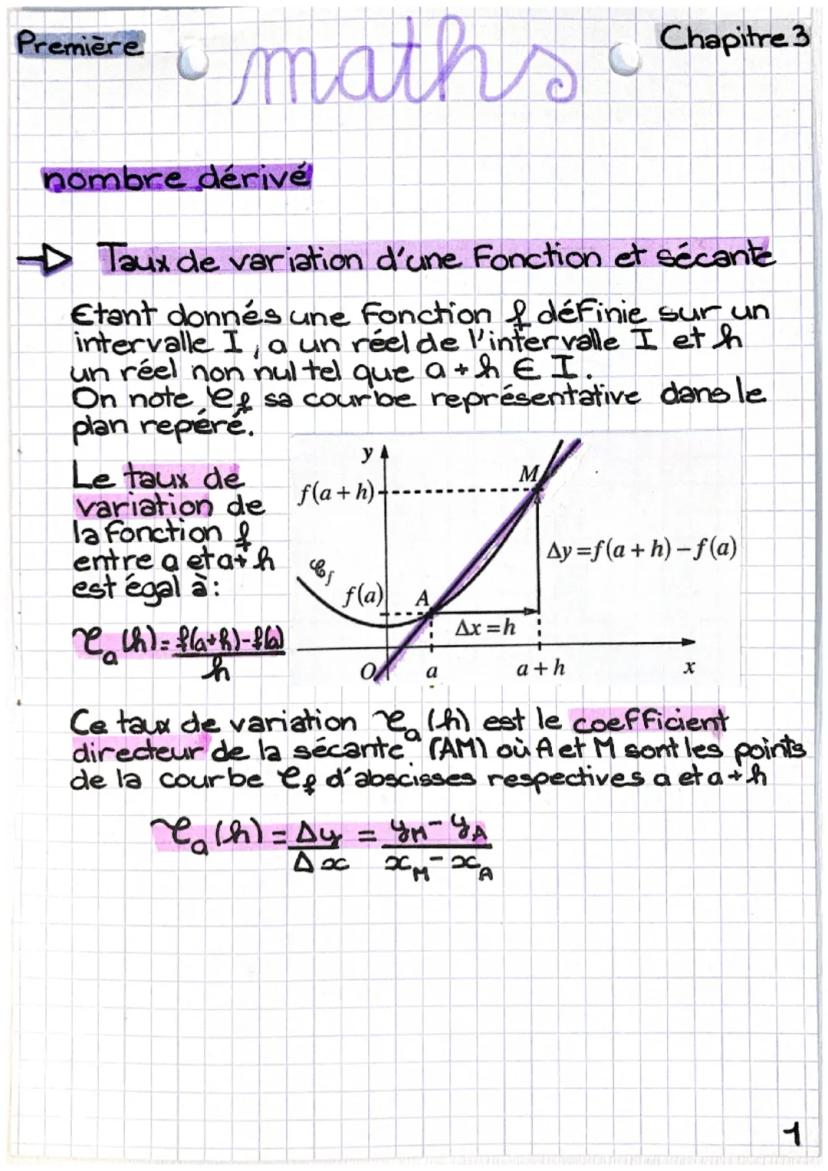 Première
maths
Chapitre 3
nombre dérivé
Taux de variation d'une Fonction et sécante
Etant donnés une fonction f définie sur un
intervalle I, a un réel de l'intervalle I et h
un réel non nul tel que a + h ∈ I.
On note 𝒞f sa courbe représentative dans le
plan repéré.
Le taux de
variation de
la fonction f
entre a et a + h
est égal à:
τa (h) = f(a+h)-f(a)
h
y
M
f(a + h)
Δy = f(a + h) – f(a)
𝒞f
f(a)
A
Δx = h
O
a
a + h
x
Ce taux de variation τa (h) est le coefficient
directeur de la sécante (AM) où A et M sont les points
de la courbe 𝒞f d'abscisses respectives a et a + h
τa (h) = Δy = yM - yA
Δx xM - xA
1